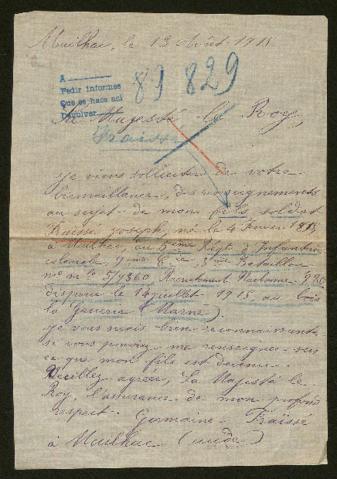 Mailhac, le 13 Août 1915
A
Pedir informes
Que se hace aci
Devolver
89 829
Sa Majesté le Roy,
Fraisse
je viens solliciter de votre
bienveillance, des renseignements
au sujet de mon fils soldat
Fraisse joseph, né le 4
à Mailhac, au 5eme Regt d'Infanterie
coloniale 9me Cie 3me Bataillon
no mle 5/7360 Recrutement Narbonne
disparu le 14 juillet 1915, au bois
la Gruerie (Marne).
je vous serais bien reconnaissante
si vous pouviez me renseigner sur
ce que mon fils est devenu.
Veuillez agréer, Sa Majesté le
Roy, l'assurance de mon profond
respect. Germaine Fraisse
à Mailhac (Aude)